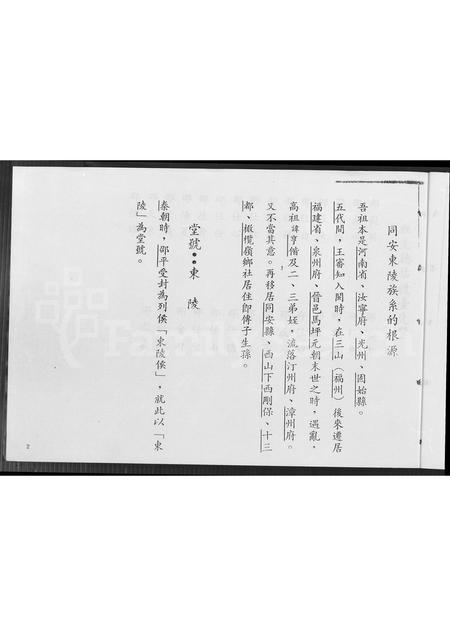 同安東陵族系的根源
吾祖本是河南省、汝寧府、光州、固始縣。
五代間，王審知入閩時，在三山（福州）後來遷居
福建省、泉州府、晉邑馬坪元朝末世之時，遇亂，
高祖諱亨偕及二、三弟姪，流落汀州府、漳州府。
又不當其意。再移居同安縣、西山下西剛保、十三
都、橄欖嶺鄉社居住即傳子生孫。
堂號：東 陵
秦朝時，邵平受封為列侯「東陵侯」，就此以「東
陵」為堂號。
2